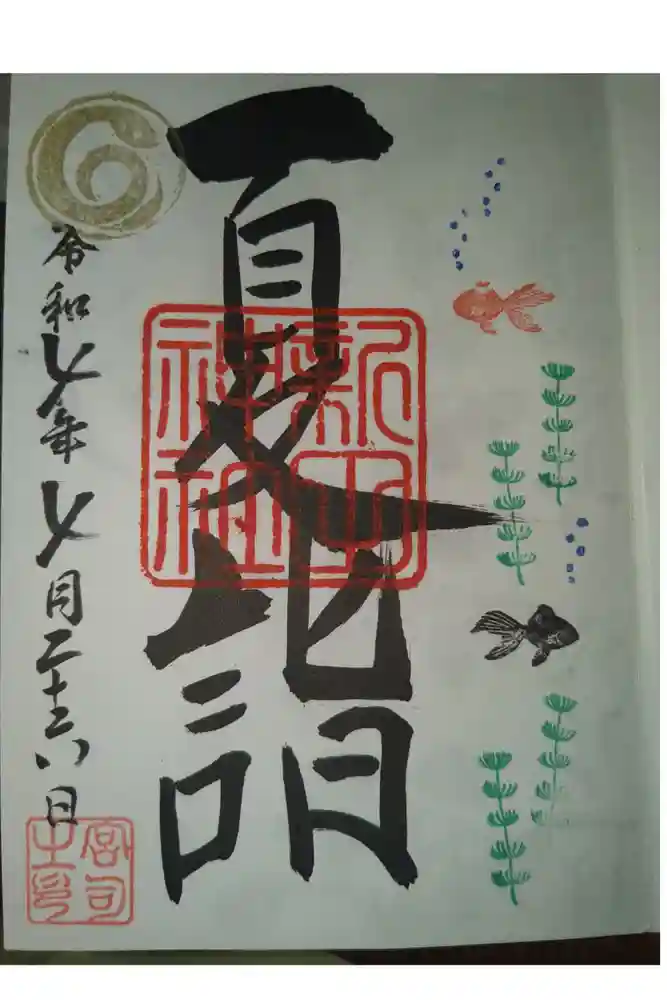 夏詣
令和七年七月二十六日
神社
宮司
之印